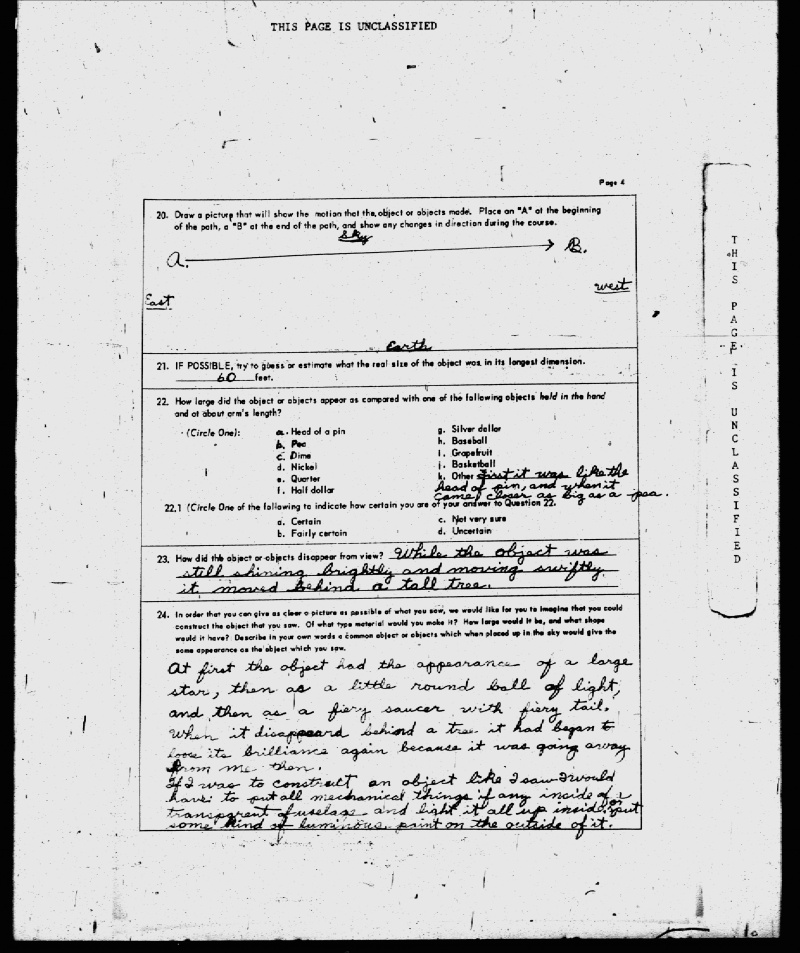 THIS PAGE IS UNCLASSIFIED
Page 4
20. Draw a picture that will show the motion that the object or objects made. Place an "A" at the beginning
of the path, a "B" at the end of the path, and show any changes in direction during the course.
Sky
A. B.
East west
Earth
21. IF POSSIBLE, try to guess or estimate what the real size of the object was in its longest dimension.
60 feet.
22. How large did the object or objects appear as compared with one of the following objects held in the hand
and at about arm's length?
(Circle One): a. Head of a pin g. Silver dollar
b. Pea h. Baseball
c. Dime i. Grapefruit
d. Nickel j. Basketball
e. Quarter k. Other first it was like the
f. Half dollar head of pin, and when it
came closer as big as a pea.
22.1 (Circle One of the following to indicate how certain you are of your answer to Question 22.
a. Certain c. Not very sure
b. Fairly certain d. Uncertain
23. How did the object or objects disappear from view? While the object was
still shining brightly and moving swiftly
it moved behind a tall tree.
24. In order that you can give as clear a picture as possible of what you saw, we would like for you to imagine that you could
construct the object that you saw. Of what type material would you make it? How large would it be, and what shape
would it have? Describe in your own words a common object or objects which when placed up in the sky would give the
same appearance as the object which you saw.
At first the object had the appearance of a large
star, then as a little round ball of light,
and then as a fiery saucer with fiery tail.
When it disappeard behind a tree it had began to
loose its brilliance again because it was going away
from me then.
If I was to construct an object like I saw I would
have to put all mechanical things if any inside of a
transparent fuselage and light it all up inside, or put
some kind of luminous paint on the outside of it.
THIS PAGE IS UNCLASSIFIED